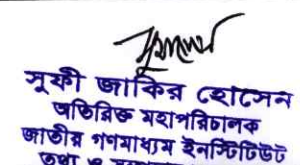 সুফী জাকির হোসেন
অতিরিক্ত মহাপরিচালক
জাতীয় গণমাধ্যম ইনস্টিটিউট
তথ্য ও